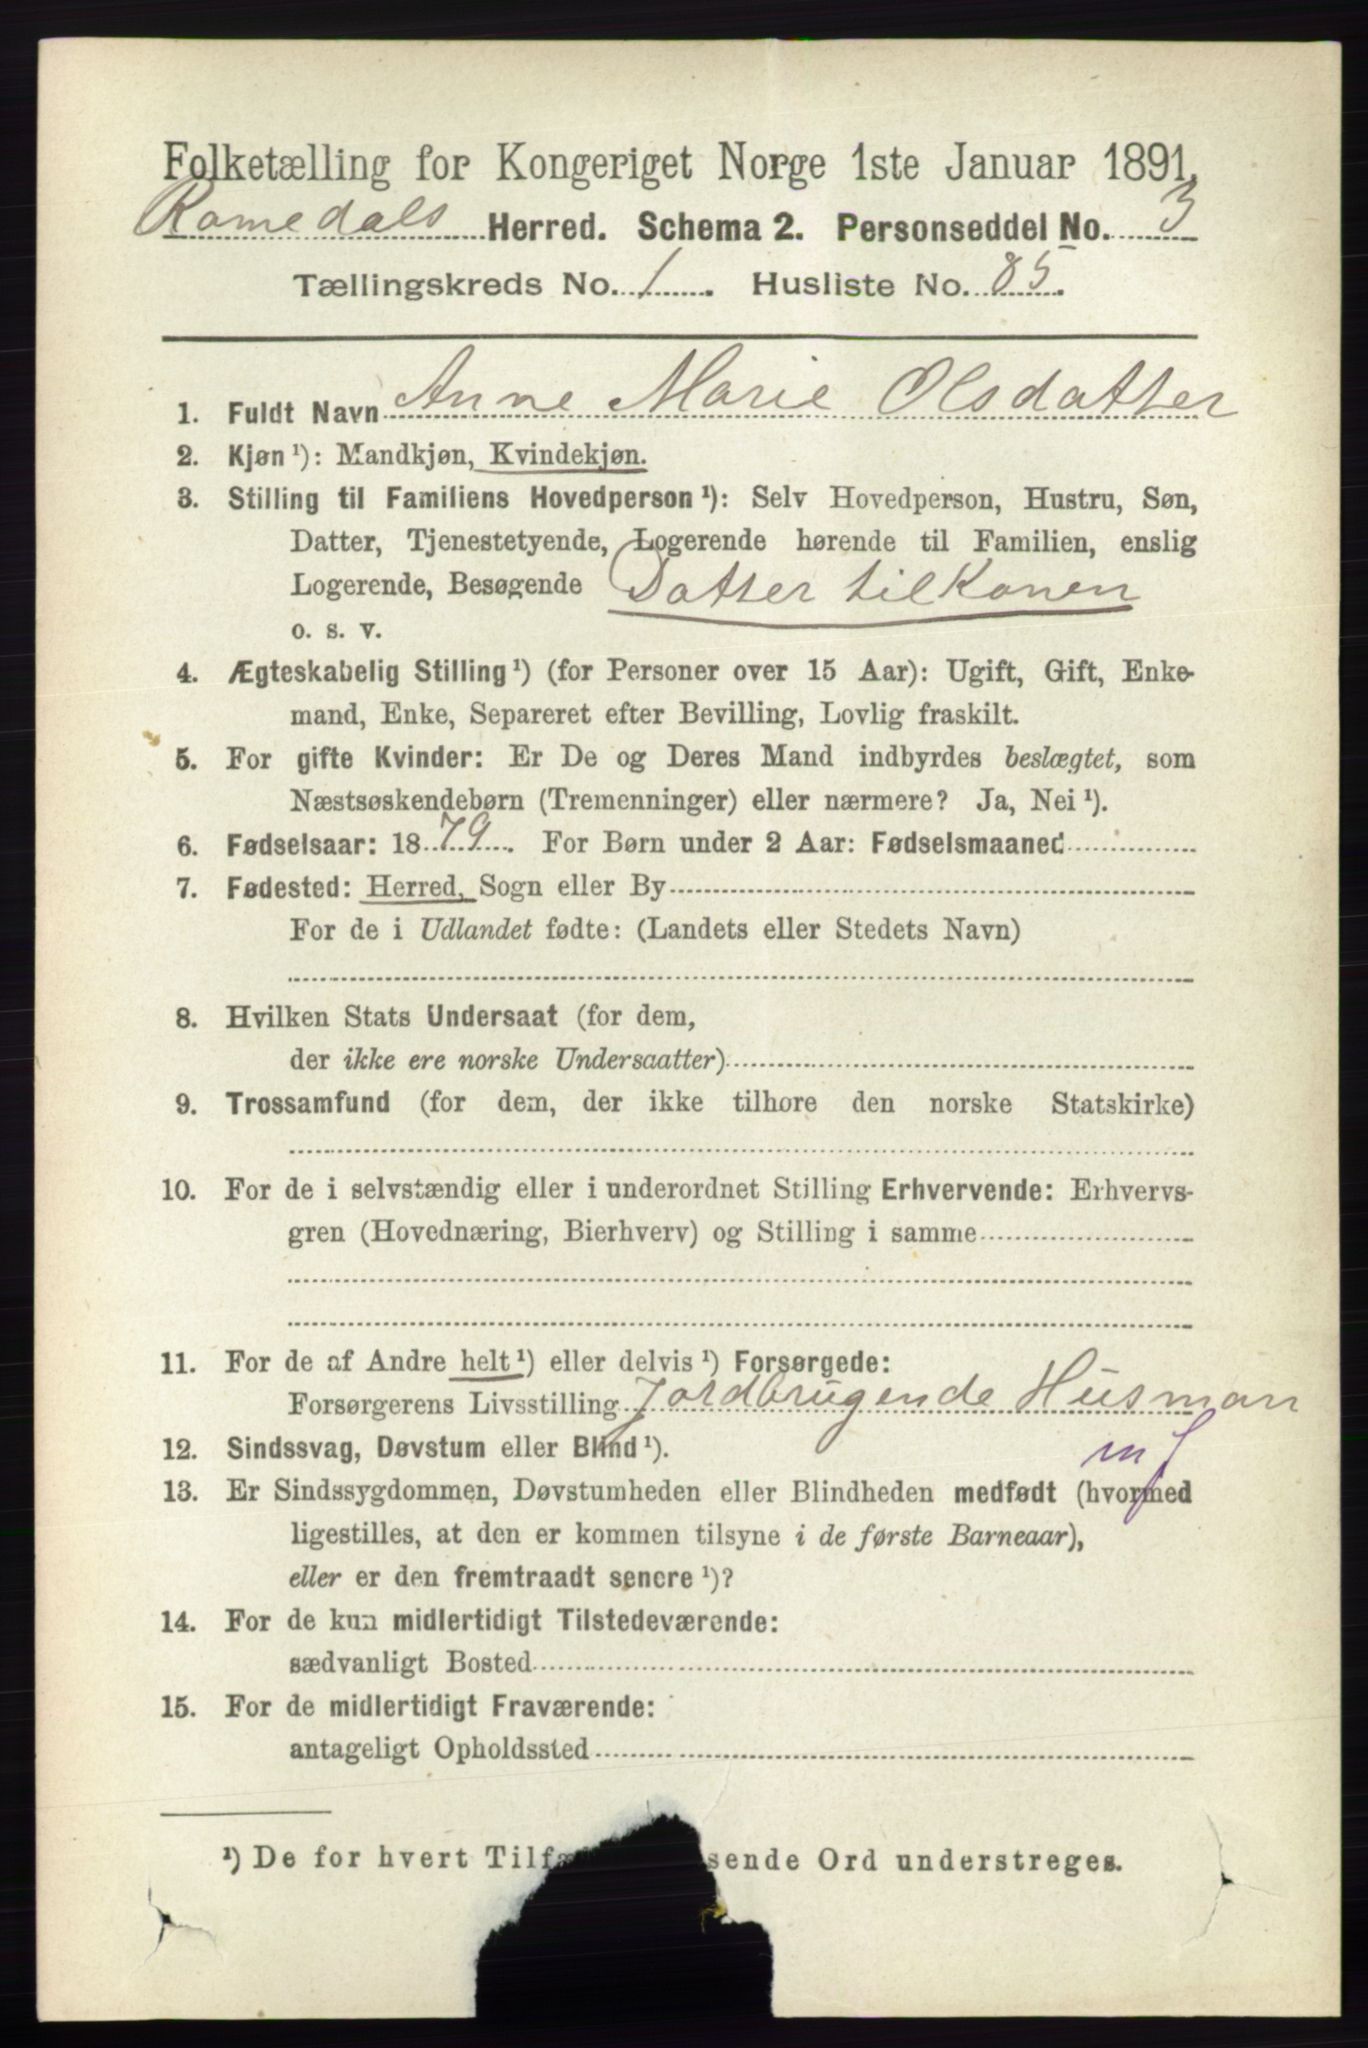 Folketælling for Kongeriget Norge 1ste Januar 1891.
Romedals Herred. Schema 2. Personseddel No. 3
Tællingskreds No. 1. Husliste No. 85.
1. Fuldt Navn Anne Marie Olsdatter
2. Kjøn ¹): Mandkjøn, Kvindekjøn.
3. Stilling til Familiens Hovedperson ¹): Selv Hovedperson, Hustru, Søn,
Datter, Tjenestetyende, Logerende hørende til Familien, enslig
Logerende, Besøgende Datter til Konen
o. s. v.
4. Ægteskabelig Stilling ¹) (for Personer over 15 Aar): Ugift, Gift, Enke-
mand, Enke, Separeret efter Bevilling, Lovlig fraskilt.
5. For gifte Kvinder: Er De og Deres Mand indbyrdes beslægtet, som
Næstsøskendebørn (Tremenninger) eller nærmere? Ja, Nei ¹).
6. Fødselsaar: 1879. For Børn under 2 Aar: Fødselsmaaned
7. Fødested: Herred, Sogn eller By
For de i Udlandet fødte: (Landets eller Stedets Navn)
8. Hvilken Stats Undersaat (for dem,
der ikke ere norske Undersaatter)
9. Trossamfund (for dem, der ikke tilhøre den norske Statskirke)
10. For de i selvstændig eller i underordnet Stilling Erhvervende: Erhvervs-
gren (Hovednæring, Bierhverv) og Stilling i samme
11. For de af Andre helt ¹) eller delvis ¹) Forsørgede:
Forsørgerens Livsstilling Jordbrugende Husman
12. Sindssvag, Døvstum eller Blind ¹).
m J
13. Er Sindssygdommen, Døvstumheden eller Blindheden medfødt (hvormed
ligestilles, at den er kommen tilsyne i de første Barneaar),
eller er den fremtraadt senere ¹)?
14. For de kun midlertidigt Tilstedeværende:
sædvanligt Bosted
15. For de midlertidigt Fraværende:
antageligt Opholdssted
¹) De for hvert Tilfæ sende Ord understreges.